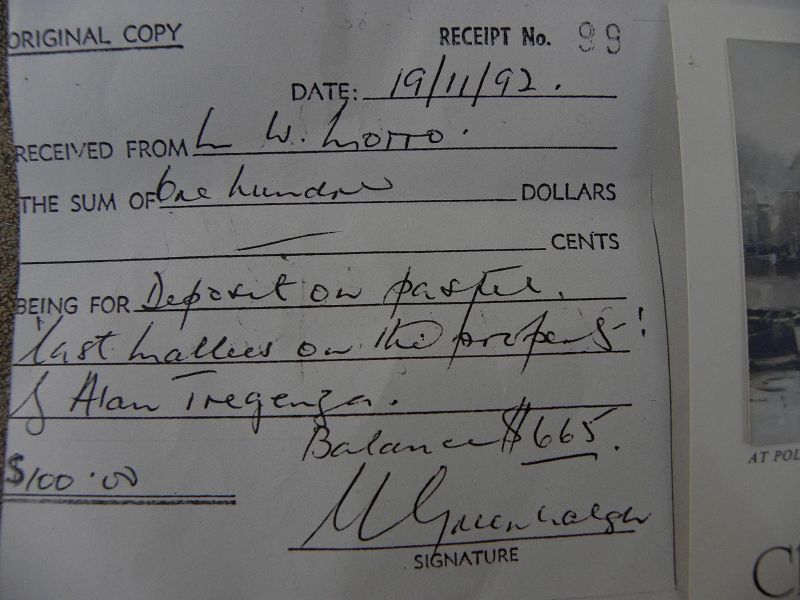 ORIGINAL COPY
RECEIPT No. 99
DATE: 19/11/92.
RECEIVED FROM L W.
THE SUM OF One hundred DOLLARS
— CENTS
BEING FOR Deposit on pastel.
'Last Mallees on the property'
by Alan Tregenza.
Balance $665.
$100.00
M Greenhalgh
SIGNATURE
AT POL
C